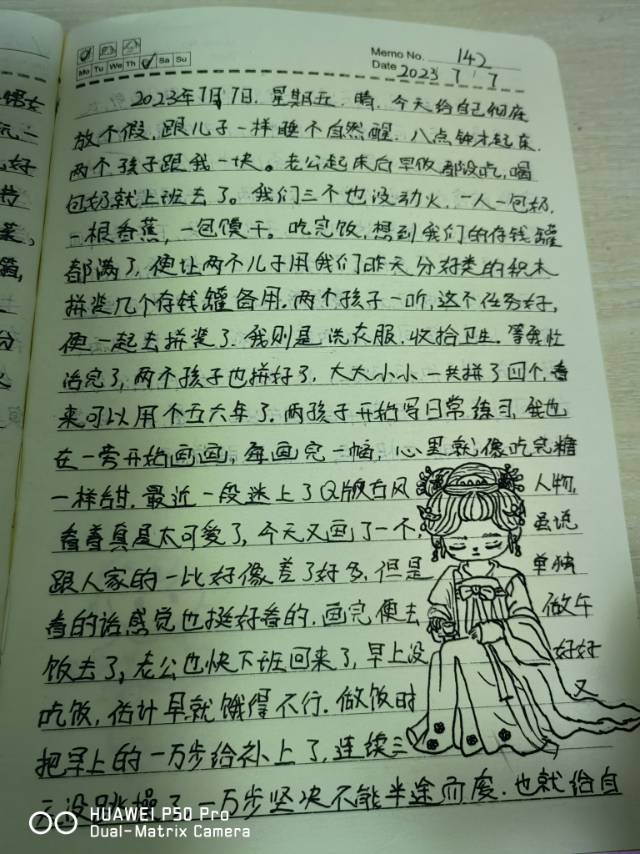 Mo Tu We Th Sa Su
Memo No. 142
Date 2023 7 7
2023年7月7日，星期五，晴，今天给自己彻底
放个假，跟儿子一样睡个自然醒，八点钟才起床，
两个孩子跟我一块。老公起床后早饭都没吃，喝
包奶就上班去了。我们三个也没动火，一人一包奶，
一根香蕉，一包馍干。吃完饭，想到我们的存钱罐
都满了，便让两个儿子用我们昨天分好类的积木
拼装几个存钱罐备用。两个孩子一听，这个任务好，
便一起去拼装了。我则是洗衣服，收拾卫生。等我忙
活完了，两个孩子也拼好了，大大小小一共拼了四个，看
来可以用个五六年了。两孩子开始写日常练习，我也
在一旁开始画画，每画完一幅，心里就像吃完糖
一样甜。最近一段迷上了Q版古风人物，
看着真是太可爱了，今天又画了一个，虽说
跟人家的一比好像差了好多，但是单独
看的话感觉也挺好看的。画完便去做午
饭去了，老公也快下班回来了，早上没好好
吃饭，估计早就饿得不行。做饭时又
把早上的一万步给补上了，连续三
天没跳操了，一万步坚决不能半途而废。也就给自
HUAWEI P50 Pro
Dual-Matrix Camera